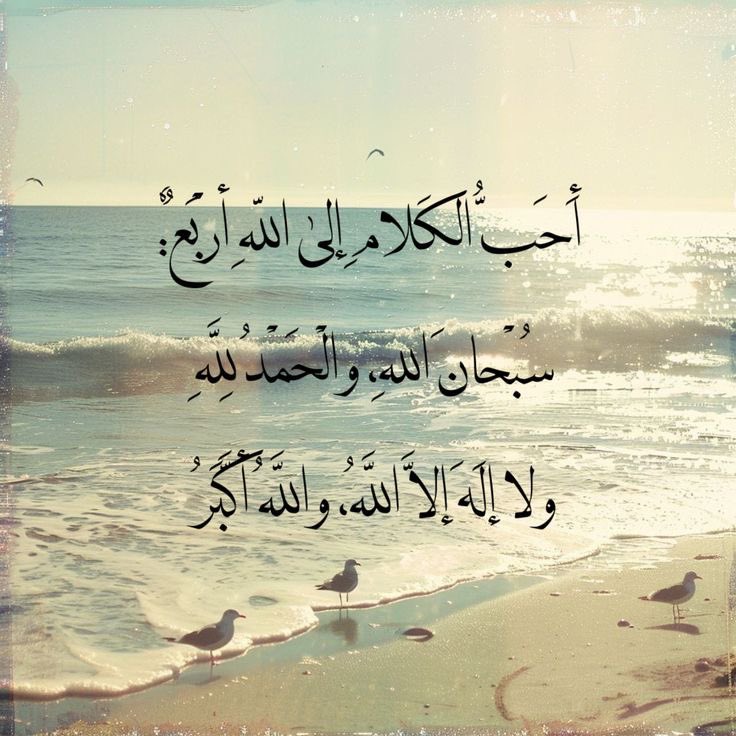 أَحَبُّ الكَلامِ إِلىٰ اللّهِ أربَعٌ:
سُبْحانَ اللهِ، والْحَمْدُ لِلَّهِ
ولا إِلَهَ إِلاَّ اللَّهُ، واللَّهُ أَكْبَرُ